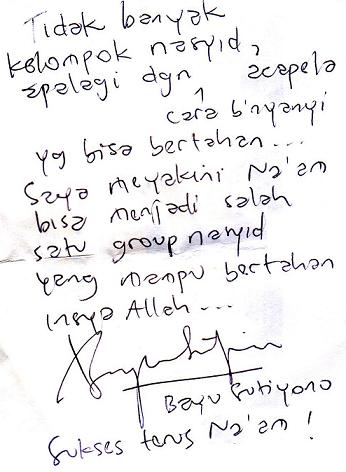 Tidak banyak
kelompok nasyid,
apalagi dgn acapela
cara b'nyanyi
yg bisa bertahan...
Saya meyakini Na'am
bisa menjadi salah
satu group nasyid
yang mampu bertahan
insya Allah...
Bayu Sutiyono
Sukses terus Na'am!